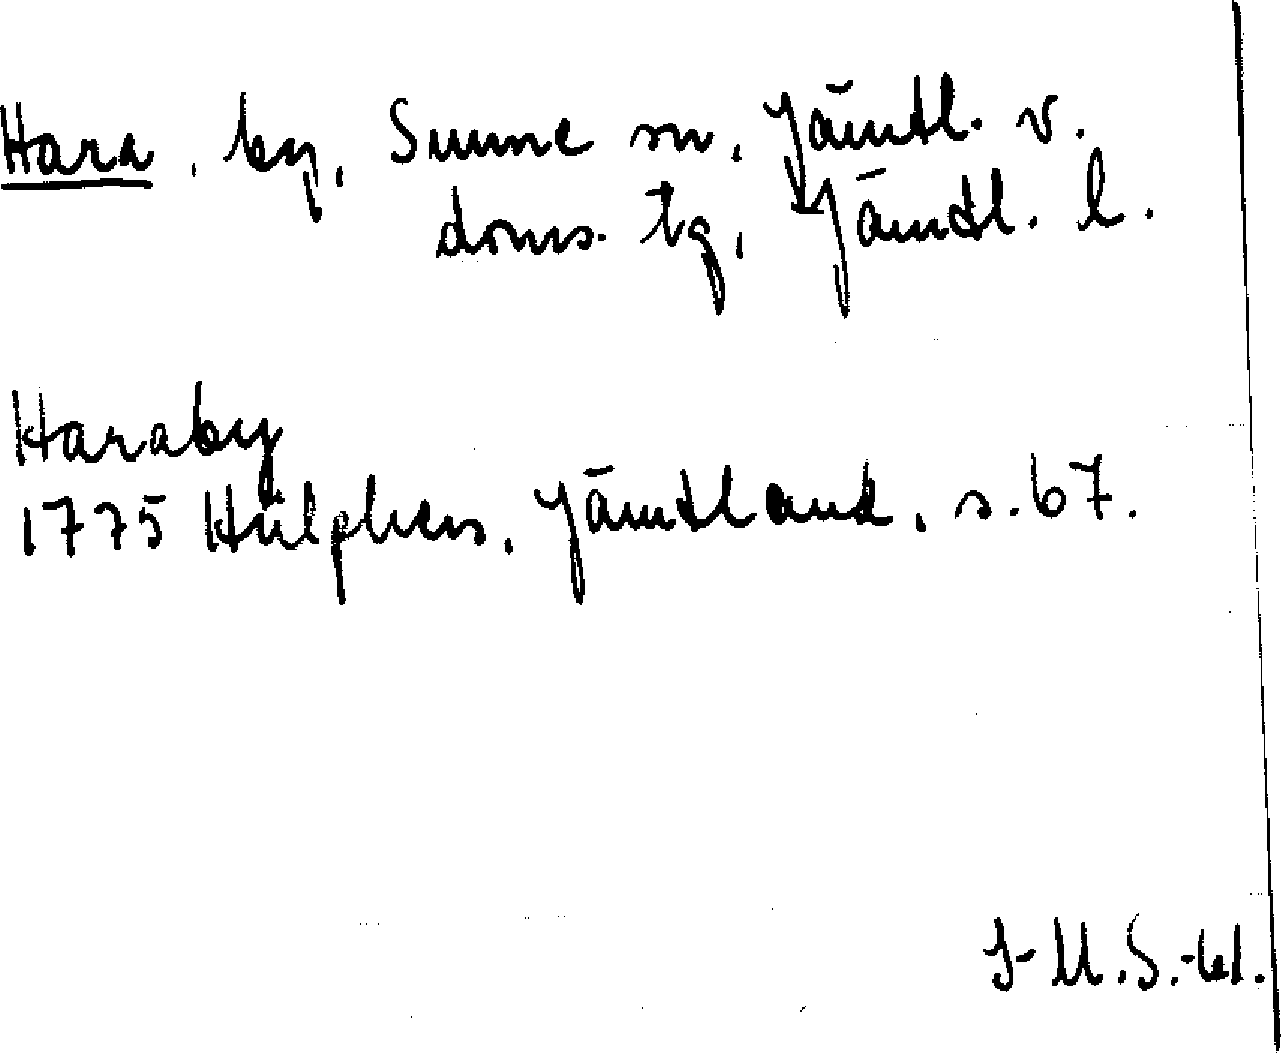 Hara, by, Sunne sn, Jämtl. v.
doms. tg, Jämtl. l.
Haraby
1775 Hülphers, Jämtland, s. 67.
J-M.S.-61.